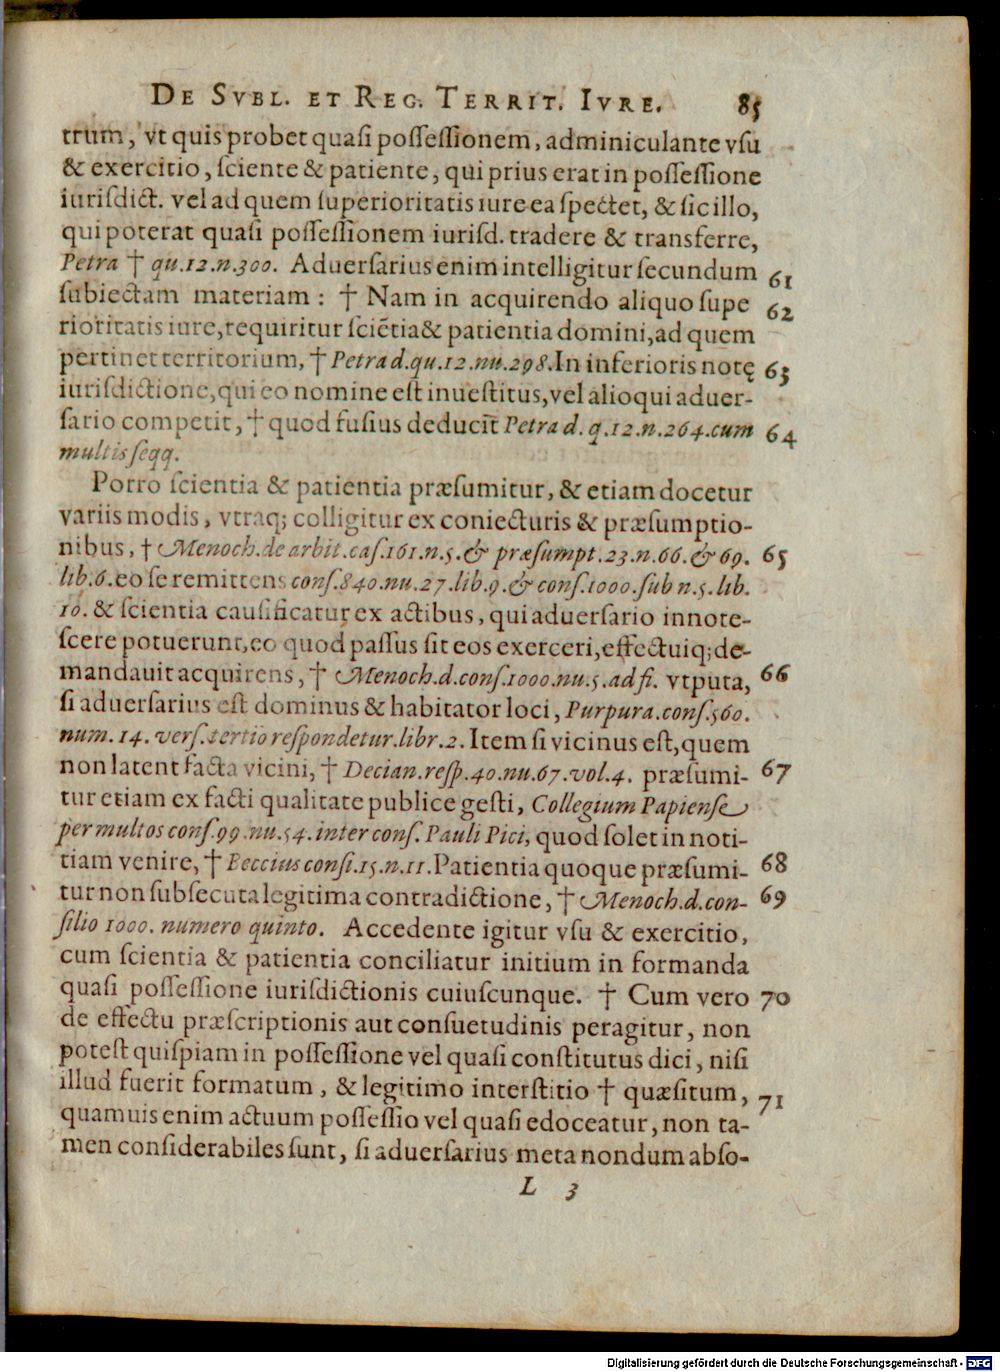 DE SVBL. ET REG. TERRIT. IVRE. 85
trum, vt quis probet quasi possessionem, adminiculante vsu
& exercitio, sciente & patiente, qui prius erat in possessione
iurisdict. vel ad quem superioritatis iure ea spectet, & sic illo,
qui poterat quasi possessionem iurisd. tradere & transferre,
Petra † qu.12.n.300. Aduersarius enim intelligitur secundum 61
subiectam materiam : † Nam in acquirendo aliquo supe 62
rioritatis iure, requiritur sciẽtia & patientia domini, ad quem
pertinet territorium, † Petra d.qu.12.nu.298. In inferioris notę 63
iurisdictione, qui eo nomine est inuestitus, vel alioqui aduer-
sario competit, † quod fusius deducit Petra d. q.12.n.264.cum 64
multis seqq.
Porro scientia & patientia præsumitur, & etiam docetur
variis modis, vtraq; colligitur ex coniecturis & præsumptio-
nibus, † Menoch.de arbit.cas.161.n.5.& præsumpt.23.n.66.& 69. 65
lib.6. eo se remittens cons.840.nu.27.lib.9.& cons.1000.sub n.5.lib.
10. & scientia causificatur ex actibus, qui aduersario innote-
scere potuerunt, eo quod passus sit eos exerceri, effectuiq; de-
mandauit acquirens, † Menoch.d.cons.1000.nu.5.ad fi. vtputa, 66
si aduersarius est dominus & habitator loci, Purpura.cons.560.
num. 14. vers.tertio respondetur.libr.2. Item si vicinus est, quem
non latent facta vicini, † Decian.resp.40.nu.67.vol.4. præsumi- 67
tur etiam ex facti qualitate publice gesti, Collegium Papiense
per multos cons.99.nu.54.inter cons.Pauli Pici, quod solet in noti-
tiam venire, † Beccius consi.15.n.11. Patientia quoque præsumi- 68
tur non subsecuta legitima contradictione, † Menoch.d.con- 69
silio 1000. numero quinto. Accedente igitur vsu & exercitio,
cum scientia & patientia conciliatur initium in formanda
quasi possessione iurisdictionis cuiuscunque. † Cum vero 70
de effectu præscriptionis aut consuetudinis peragitur, non
potest quispiam in possessione vel quasi constitutus dici, nisi
illud fuerit formatum, & legitimo interstitio † quæsitum, 71
quamuis enim actuum possessio vel quasi edoceatur, non ta-
men considerabiles sunt, si aduersarius meta nondum abso-
L 3
Digitalisierung gefördert durch die Deutsche Forschungsgemeinschaft - DFG